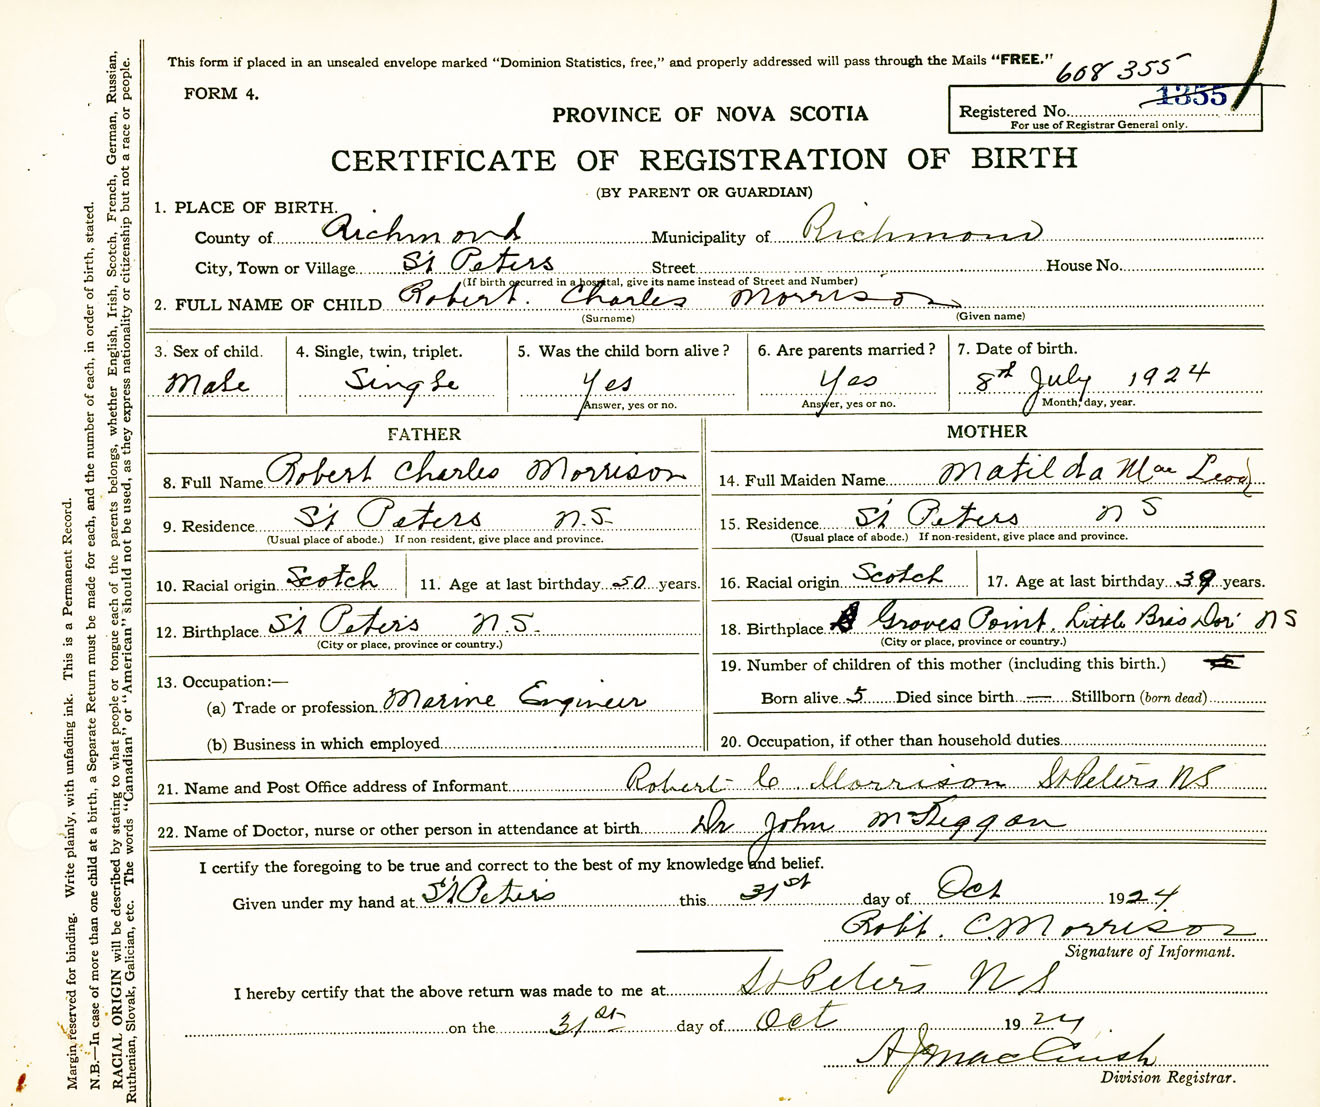 This form if placed in an unsealed envelope marked "Dominion Statistics, free," and properly addressed will pass through the Mails "FREE."
608 355
FORM 4.
1355
PROVINCE OF NOVA SCOTIA
Registered No.
For use of Registrar General only.
CERTIFICATE OF REGISTRATION OF BIRTH
(BY PARENT OR GUARDIAN)
1. PLACE OF BIRTH.
County of Richmond Municipality of Richmond
City, Town or Village St Peters Street House No.
(If birth occurred in a hospital, give its name instead of Street and Number)
2. FULL NAME OF CHILD Robert Charles Morrison
(Surname) (Given name)
3. Sex of child. 4. Single, twin, triplet. 5. Was the child born alive? 6. Are parents married? 7. Date of birth.
Male Single Yes Yes 8th July 1924
Answer, yes or no. Answer, yes or no. Month, day, year.
FATHER MOTHER
8. Full Name Robert Charles Morrison
14. Full Maiden Name Matilda Mac Leod
9. Residence St Peters N.S.
(Usual place of abode.) If non-resident, give place and province.
15. Residence St Peters N S
(Usual place of abode.) If non-resident, give place and province.
10. Racial origin Scotch 11. Age at last birthday 50 years.
16. Racial origin Scotch 17. Age at last birthday 39 years.
12. Birthplace St Peters N.S.
(City or place, province or country.)
18. Birthplace Groves Point. Little Bras Dor N S
(City or place, province or country.)
13. Occupation:—
(a) Trade or profession Marine Engineer
(b) Business in which employed
19. Number of children of this mother (including this birth.) 5
Born alive 5 Died since birth — Stillborn (born dead)
20. Occupation, if other than household duties
21. Name and Post Office address of Informant Robert C Morrison St Peters NS
22. Name of Doctor, nurse or other person in attendance at birth Dr John McKeggan
I certify the foregoing to be true and correct to the best of my knowledge and belief.
Given under my hand at St Peters this 31st day of Oct 1924
Robt. C. Morrison
Signature of Informant.
I hereby certify that the above return was made to me at St Peters N S
on the 31st day of Oct 1924
A J MacCuish
Division Registrar.
Margin reserved for binding. Write plainly, with unfading ink. This is a Permanent Record.
N.B.—In case of more than one child at a birth, a Separate Return must be made for each, and the number of each, in order of birth, stated.
RACIAL ORIGIN will be described by stating to what people or tongue each of the parents belongs, whether English, Irish, Scotch, French, German, Russian,
Ruthenian, Slovak, Galician, etc. The words "Canadian" or "American" should not be used, as they express nationality or citizenship but not a race or people.